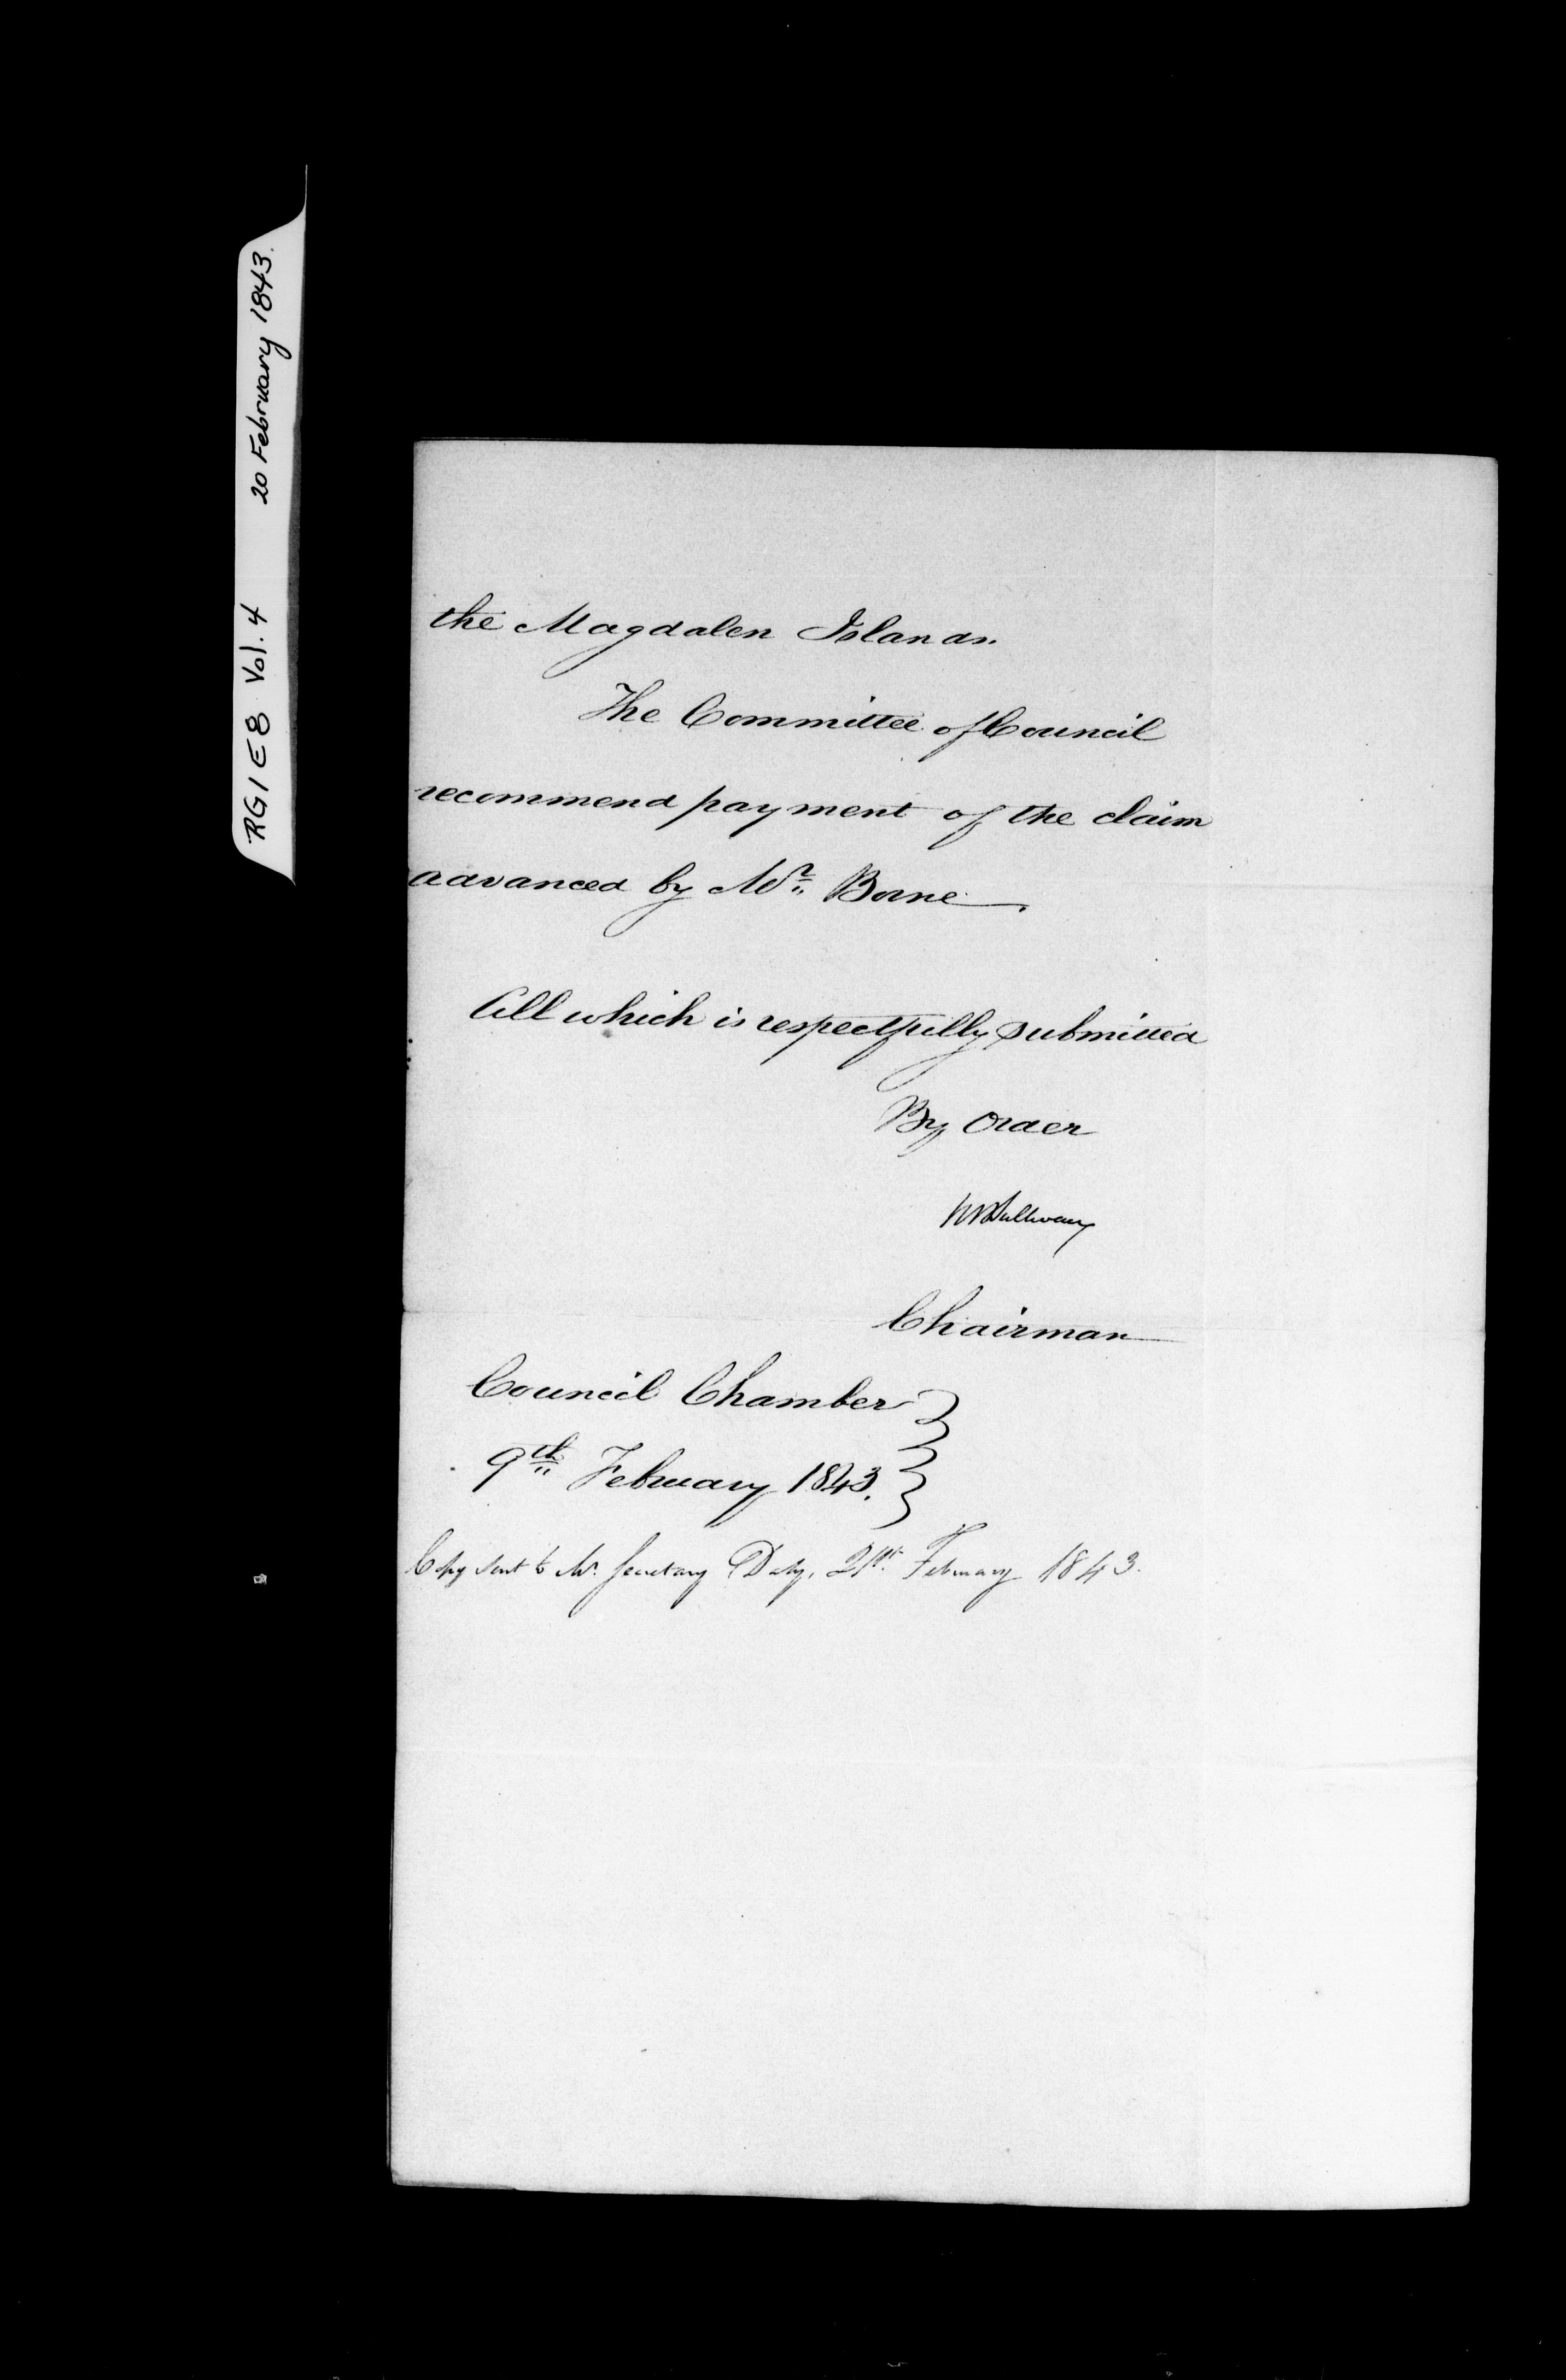 RG1 E8 Vol. 4 20 February 1843.
the Magdalen Islands.
The Committee of Council
recommend payment of the claim
advanced by Mr. Borne.
All which is respectfully submitted
By Order
RBSullivan
Chairman
Council Chamber
9th February 1843.
Copy sent to Mr. Secretary Daly, 21st February 1843.